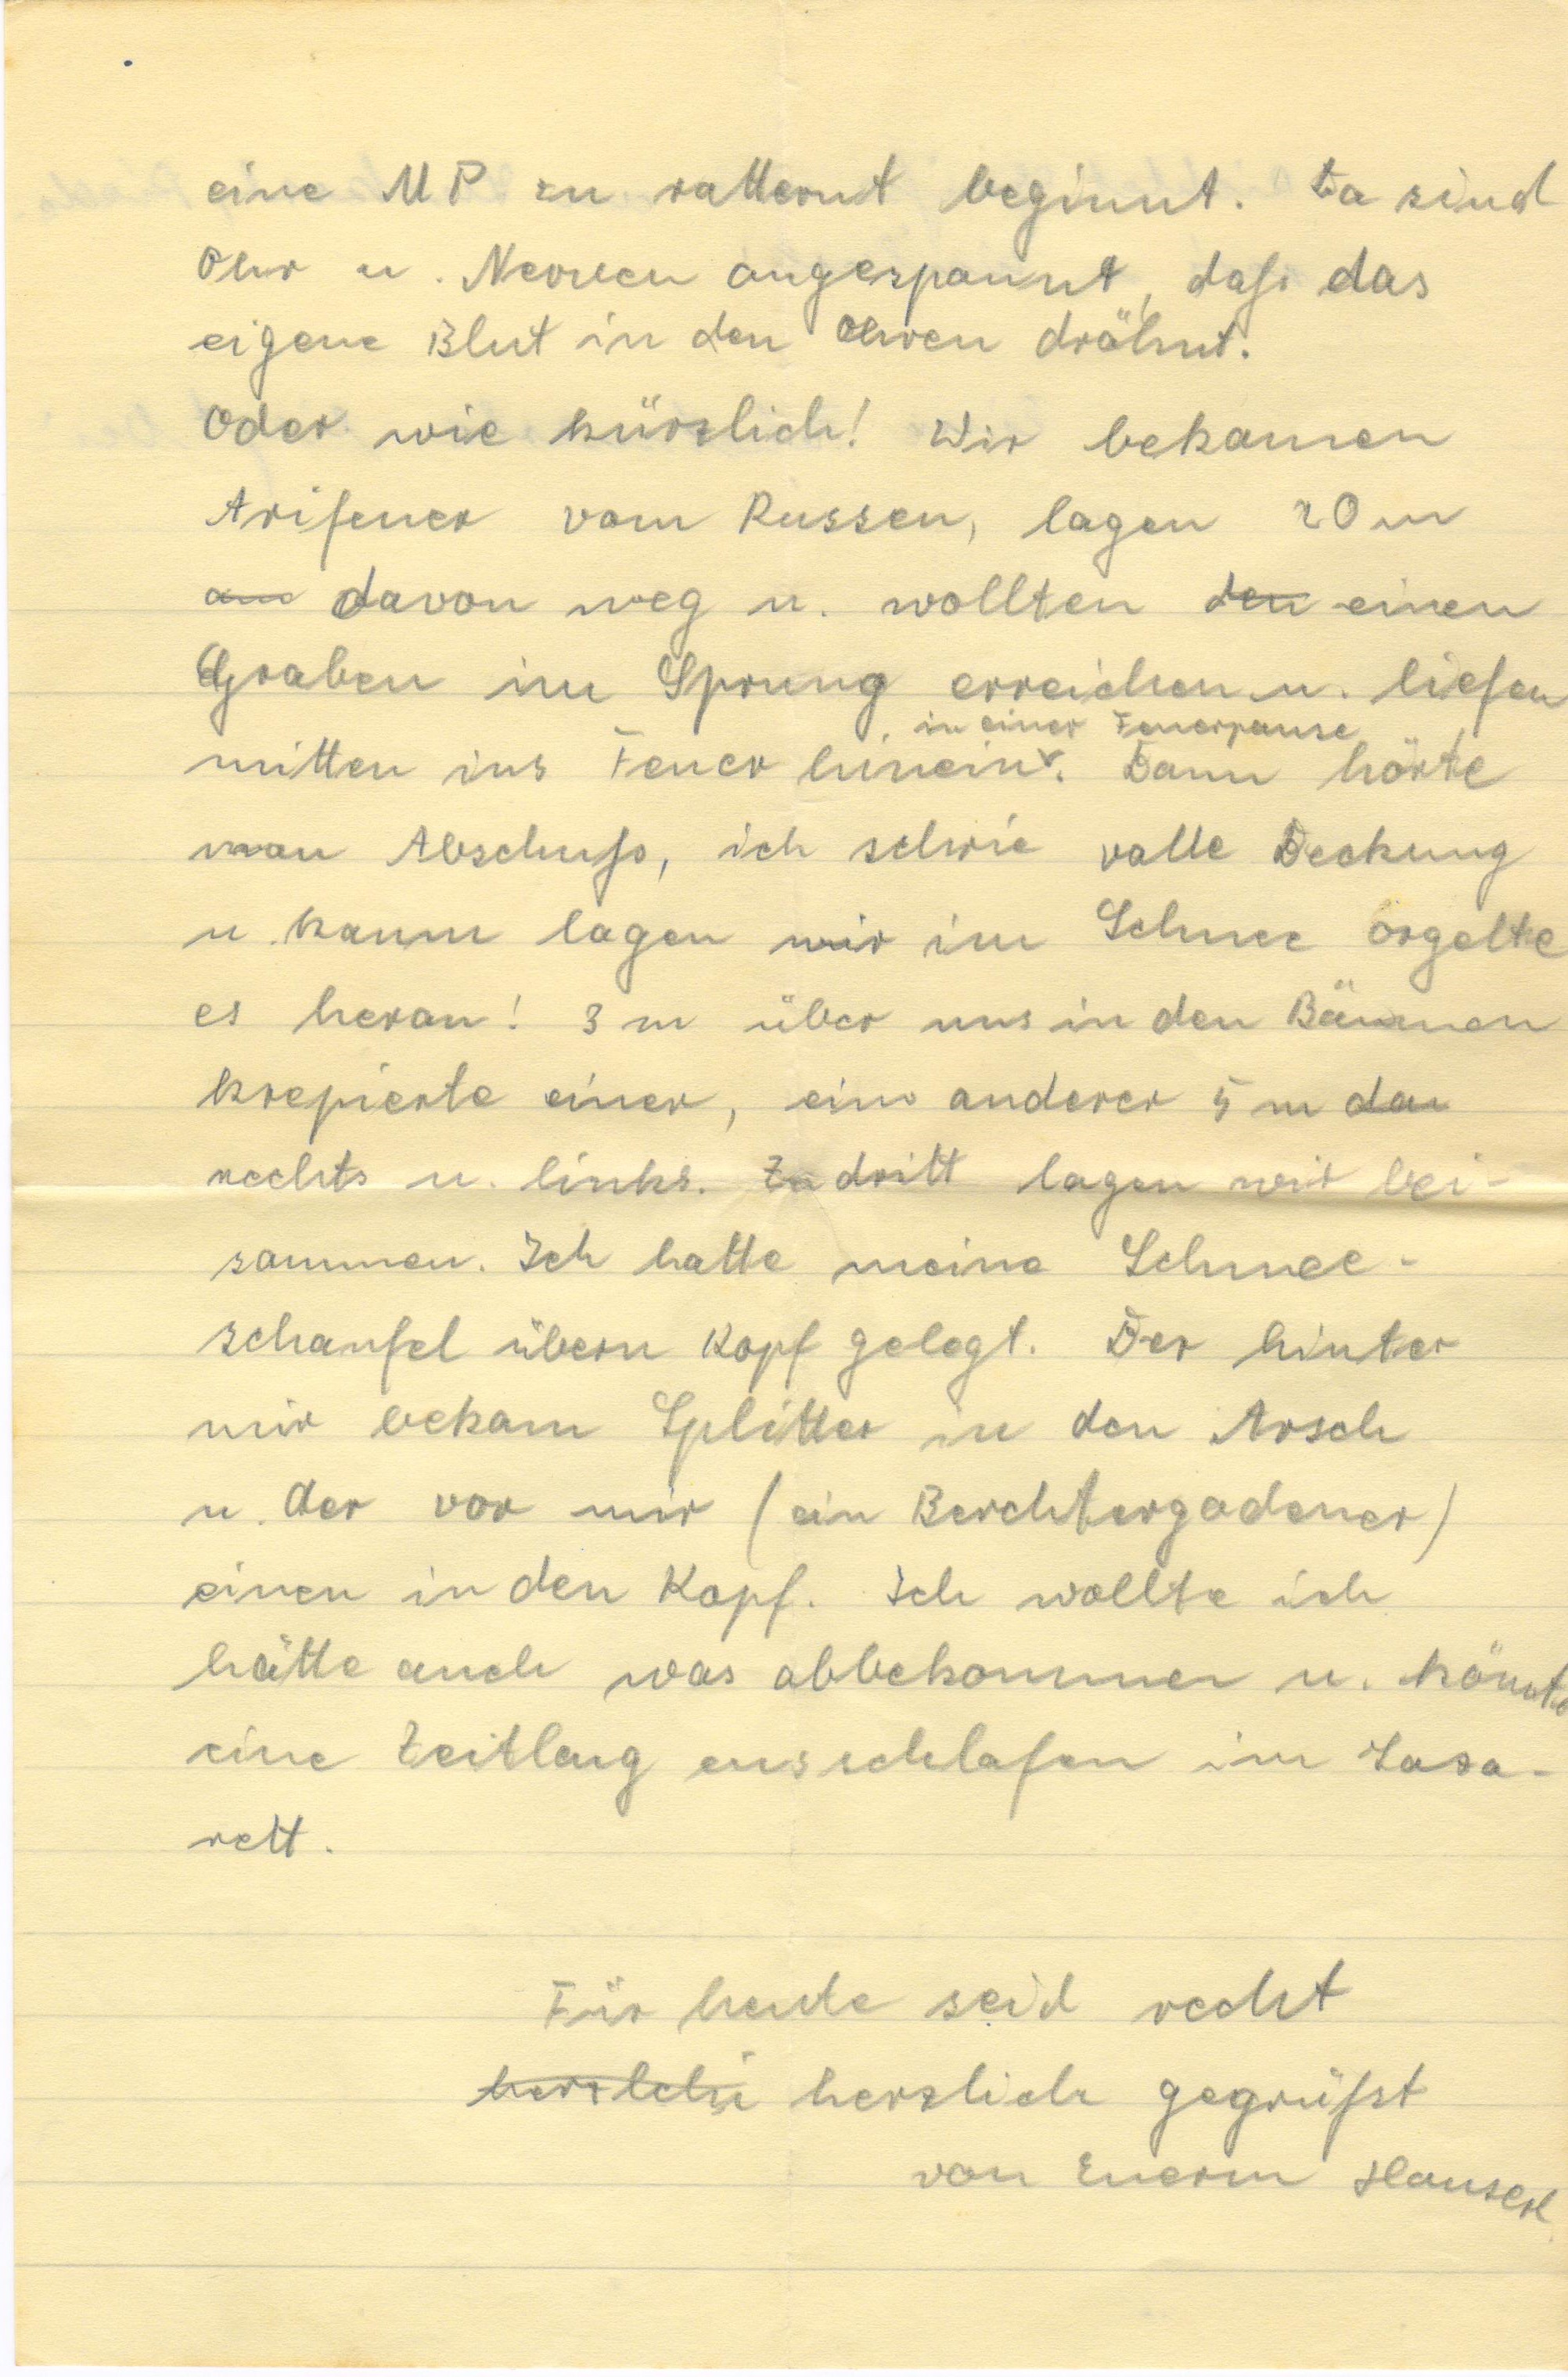 eine MP zu ratternt beginnt. Da sind
Ohr u. Nerven angespannt, daß das
eigene Blut in den Ohren dröhnt.
Oder wie kürzlich! Wir bekamen
Arifeuer vom Russen, lagen 20 m
davon weg u. wollten den einen
Graben im Sprung erreichen u. liefen
in einer Feuerpause
mitten ins Feuer hinein. Dann hörte
man Abschuß, ich schrie volle Deckung
u. kaum lagen wir im Schnee orgelte
es heran! 3 m über uns in den Bäumen
krepierte einer, ein anderer 5 m dan
rechts u. links. Zu dritt lagen wir bei-
sammen. Ich hatte meine Schnee-
schaufel übern Kopf gelegt. Der hinter
mir bekam Splitter in den Arsch
u. der vor mir (ein Berchtergadener)
einen in den Kopf. Ich wollte ich
hätte auch was abbekommen u. könnte
eine Zeitlang ausschlafen im Laza-
rett.
Für heute seid recht
herzlich gegrüßt
von Euerm Hanserl